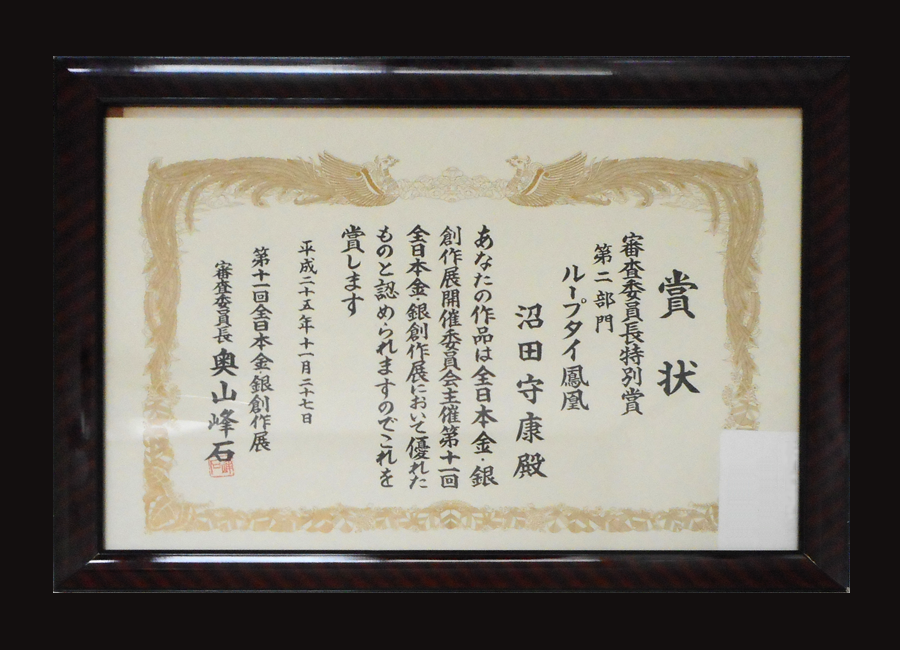 賞状
審査委員長特別賞
第二部門
ループタイ鳳凰
沼田守康殿
あなたの作品は全日本金・銀
創作展開催委員会主催第十一回
全日本金・銀創作展において優れた
ものと認められますのでこれを
賞します
平成二十五年十一月二十七日
第十一回全日本金・銀創作展
審査委員長 奥山峰石